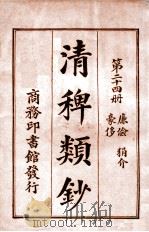 第二十四册
廉俭 狷介
豪侈
清稗類鈔
商務印書館發行